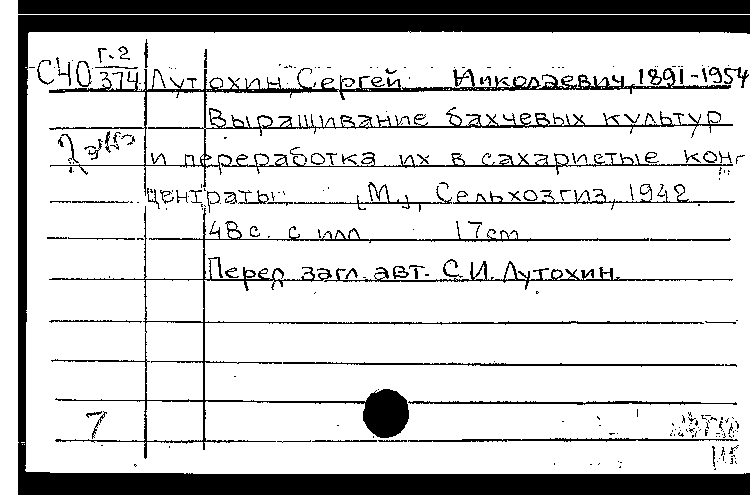 Г.2
С40 374 Лутохин, Сергей Николаевич, 1891-1954
Выращивание бахчевых культур
2 экз
и переработка их в сахаристые кон-
центраты. [М.], Сельхозгиз, 1942.
48 с. с илл. 17 cm
Перед загл. авт. С.И. Лутохин.
7